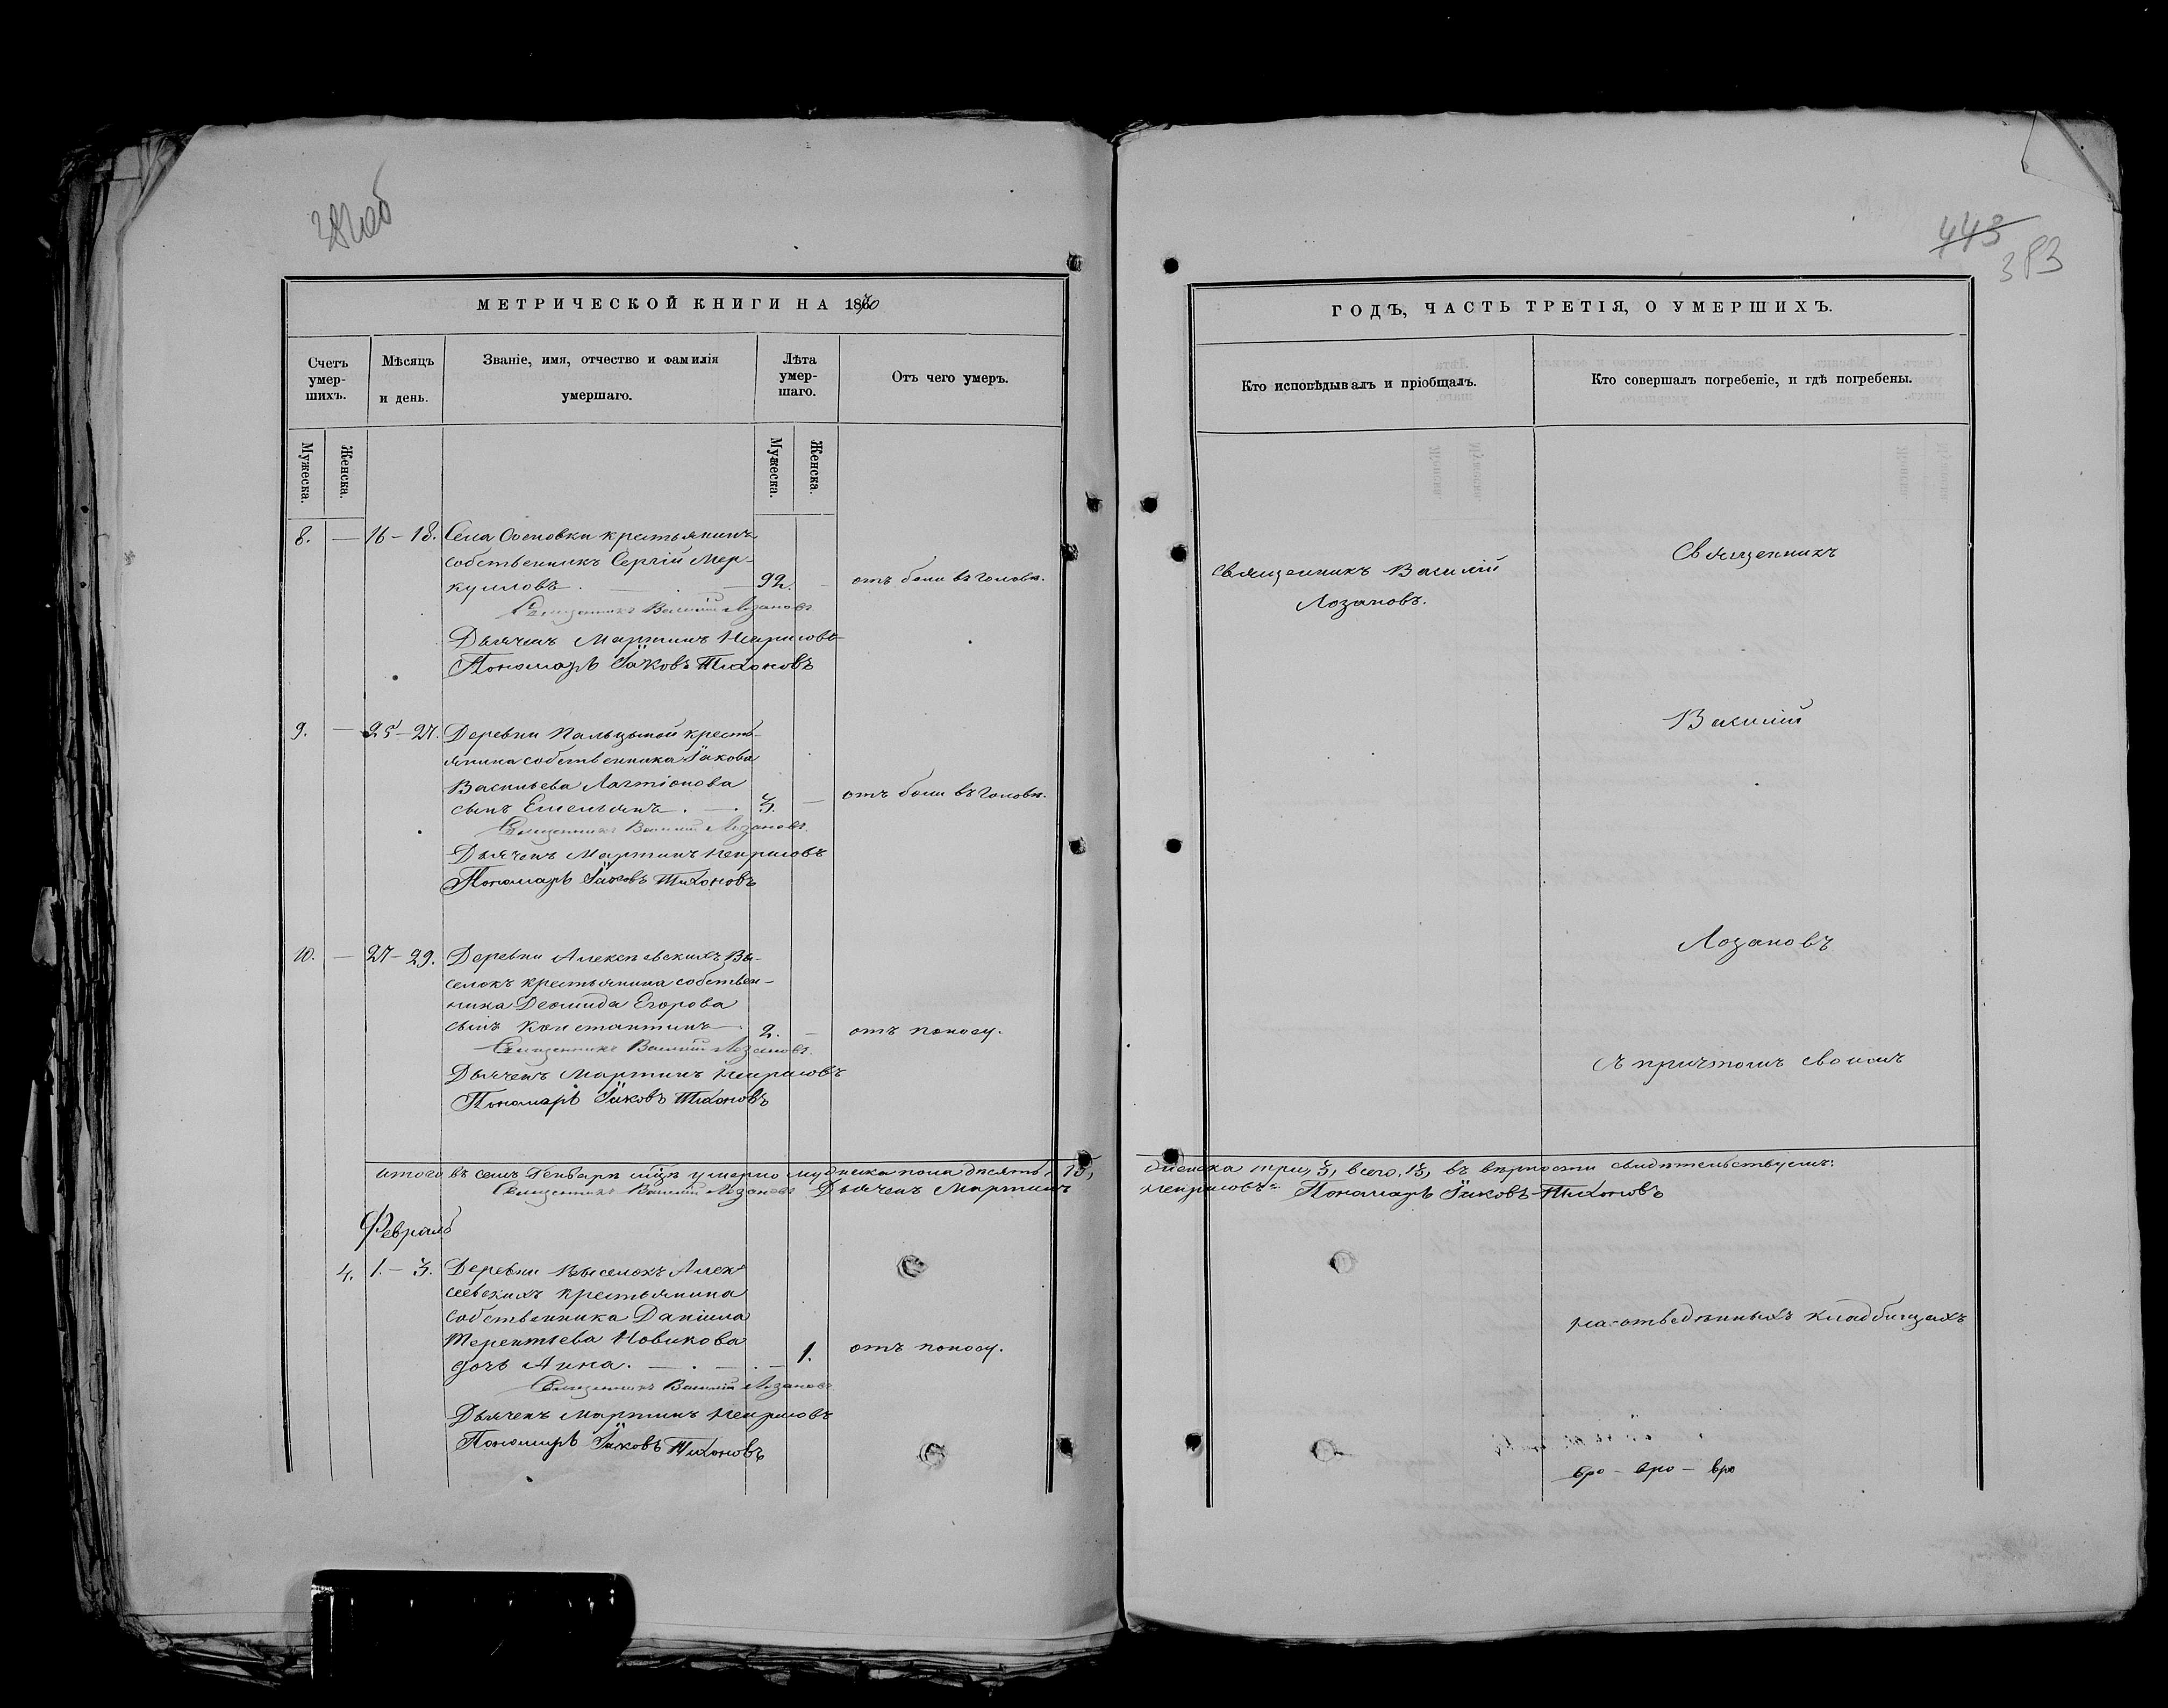 382об
443
383
МЕТРИЧЕСКОЙ КНИГИ НА 1870
Счетъ умер-шихъ.
Мѣсяцъ и день.
Званіе, имя, отчество и фамилія умершаго.
Лѣта умер-шаго.
Отъ чего умеръ.
Мужеска.
Женска.
Мужеска.
Женска.
8. — 16-18. Села Сосновки крестьянинъ
собственникъ Сергій Мер-
куловъ. — 92. — отъ боли въ головѣ.
Священникъ Василій Лозановъ
Дьячекъ Мартинъ
Пономарь Іаковъ Тихоновъ
9. — 25-27. Деревни Пальцыной кресть-
янина собственника Іакова
Васильева Лактіонова
сынъ Емельянъ. — 3. — отъ боли въ головѣ.
Священникъ Василій Лозановъ
Дьячекъ Мартинъ
Пономарь Іаковъ Тихоновъ
10. — 27-29. Деревни Алексѣевскихъ Вы-
селокъ крестьянина собствен-
ника Демида Егорова
сынъ Константинъ 2. — отъ поносу.
Священникъ Василій Лозановъ
Дьячекъ Мартинъ
Пономарь Іаковъ Тихоновъ
итого въ семъ Генварѣ мцѣ умерло мужеска пола десять, 10,
Священникъ Василій Лозановъ Дьячекъ Мартинъ
Февраль
4. 1.-3. Деревни Выселокъ Алек-
сеевскихъ крестьянина
собственника Даніила
Терентьева Новикова
дочь Анна. — 1. отъ поносу.
Священникъ Василій Лозановъ
Дьячекъ Мартинъ
Пономарь Іаковъ Тихоновъ
ГОДЪ, ЧАСТЬ ТРЕТІЯ, О УМЕРШИХЪ.
Кто исповѣдывалъ и пріобщалъ.
Кто совершалъ погребеніе, и гдѣ погребены.
священникъ Василій
Лозановъ.
Священникъ
Василій
Лозановъ
съ причтомъ своимъ
женска три, 3, всего, 13, въ вѣрности свидѣтельствуемъ:
Пономарь Іаковъ Тихоновъ
на отведенныхъ кладбищахъ